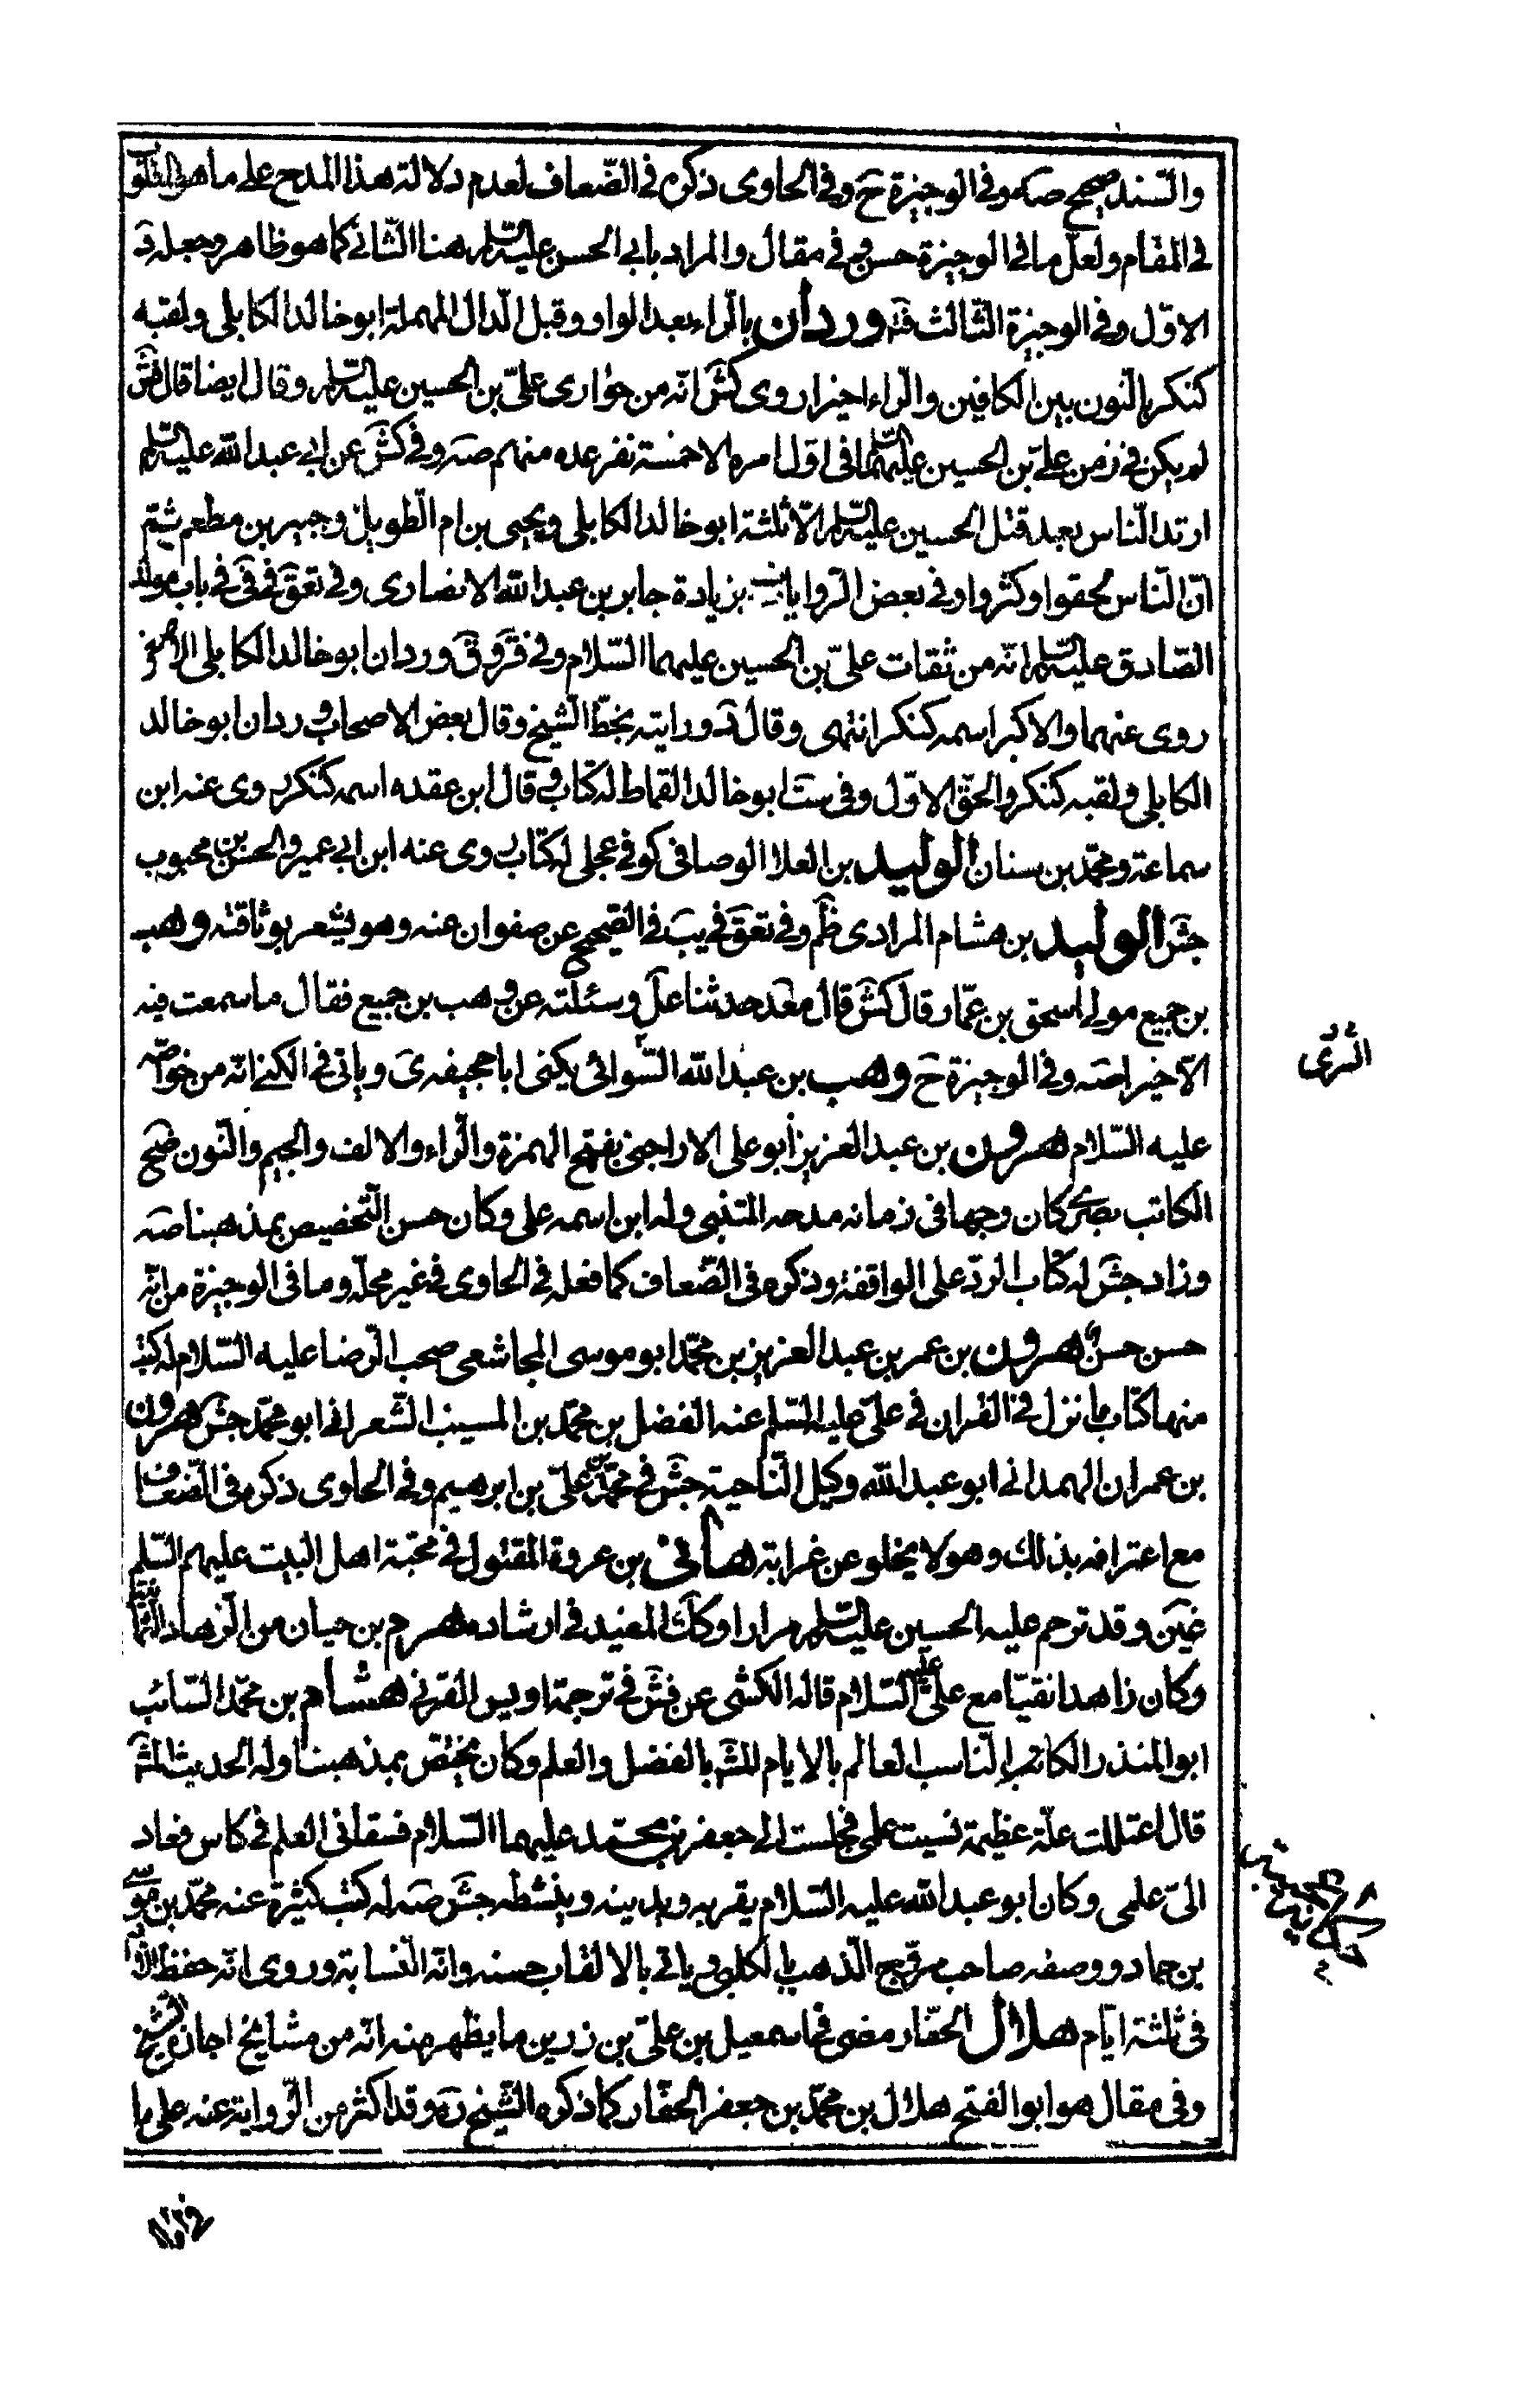 والسند صحيح صه وفى الوجيزة ح وفى الحاوى ذكره فى الضعاف لعدم دلالة هذا المدح على ما هو
فى المقام ولعل ما فى الوجيزة حسن وفى مقال والمراد بابى الحسن عليه السلام هنا الثانى كما هو ظاهر وجعله د
الاول وفى الوجيزة الثالث وردان بالراء بعد الواو وقبل الدال المهملة ابو خالد الكابلى ولقبه
كنكر بالنون بين الكافين والراء اخيرا روى كش انه من حوارى على بن الحسين عليه السلام وقال ايضا قال فش
لم يكن فى زمن على بن الحسين عليهما السلام فى اول امره الا خمسة نفر عده منهم صه وفى كش عن ابى عبد الله عليه السلم
ارتد الناس بعد قتل الحسين عليه السلم الا ثلثة ابو خالد الكابلى ويحيى بن ام الطويل وجبير بن مطعم ثم
ان الناس لحقوا وكثروا وفى بعض الروايات بزيادة جابر بن عبد الله الانصارى وفى تعق فى فى باب مولد
الصادق عليه السلم انه من ثقات على بن الحسين عليهما السلام وفى قر وق وردان ابو خالد الكابلى الاصغر
روى عنهما والاكبر اسمه كنكر انتهى وقال د ورايته بخط الشيخ وقال بعض الاصحاب وردان ابو خالد
الكابلى ولقبه كنكر والحق الاول وفى ست ابو خالد القماط له كتاب وقال ابن عقده اسمه كنكر روى عنه ابن
سماعة ومحمد بن سنان الوليد بن العلا الوصافى كوفى عجلى له كتاب روى عنه ابن ابى عمير والحسن بن محبوب
جش الوليد بن هشام المرادى ظم وفى تعق فى يب فى الصحيح عن صفوان عنه وهو يشعر بوثاقته وهب
بن جميع مولى اسحق بن عمار قال كش قال معد حدثنا على وسئلته عن وهب بن جميع فقال ما سمعت فيه
الا خيرا صه وفى الوجيزة ح وهب بن عبد الله السوائى يكنى ابا جحيفه ى وياتى فى الكنى انه من خواصه
عليه السلام هرون بن عبد العزيز ابو على الاراجنى بفتح الهمزة والراء والالف والجيم والنون
الكاتب مصرى كان وجها فى زمانه مدحه المتنبى وله ابن اسمه على وكان حسن التخصيص بمذهبنا صه
وزاد جش له كتاب الرد على الواقفة وذكره فى الضعاف كما فعله فى الحاوى فى غير محله وما فى الوجيزة من انه
حسن حسن هرون بن عمر بن عبد العزيز بن محمد ابو موسى المجاشعى صحب الرضا عليه السلام له كتب
منها كتاب ما نزل فى القران فى على عليه السلم عنه الفضل بن محمد بن المسيب الشعرانى ابو محمد جش هرون
بن عمران الهمدانى ابو عبد الله وكيل الناحية جش فى محمد بن على بن ابرهيم وفى الحاوى ذكره فى الضعاف
مع اعترافه بذلك وهو لا يخلو عن غرابة هانى بن عروة المقتول فى محبة اهل البيت عليهم السلم
غين وقد ترحم عليه الحسين عليه السلم مرارا وكك المفيد فى ارشاده هرم بن حيان من الزهاد الثمانية
وكان زاهدا نقيا مع على عليه السلام قاله الكشى عن فش فى ترجمة اويس القرنى هشام بن محمد السائب
ابو المنذر الكاتب الناسب العالم بالايام المشهر بالفضل والعلم وكان يختص بمذهبنا وله الحديث المش
قال اعتللت علة عظيمة نسيت علمى فجلست الى جعفر بن محمد عليهما السلام فسقانى العلم فى كاس فعاد
الى علمى وكان ابو عبد الله عليه السلام يقربه ويدينه وينشطه جش صه له كتب كثيرة عنه محمد بن موسى
بن حماد ووصفه صاحب مروج الذهب بالكلبى وياتى بالالقاب حسنه وانه النسابة وروى انه حفظ القران
فى ثلثة ايام هلال الحفار مضى فى اسمعيل بن على بن زرين ما يظهر منه انه من مشايخ اجازة الشيخ
وفى مقال هو ابو الفتح هلال بن محمد بن جعفر الحفار كما ذكره الشيخ ره وقد اكثر من الرواية عنه على ما